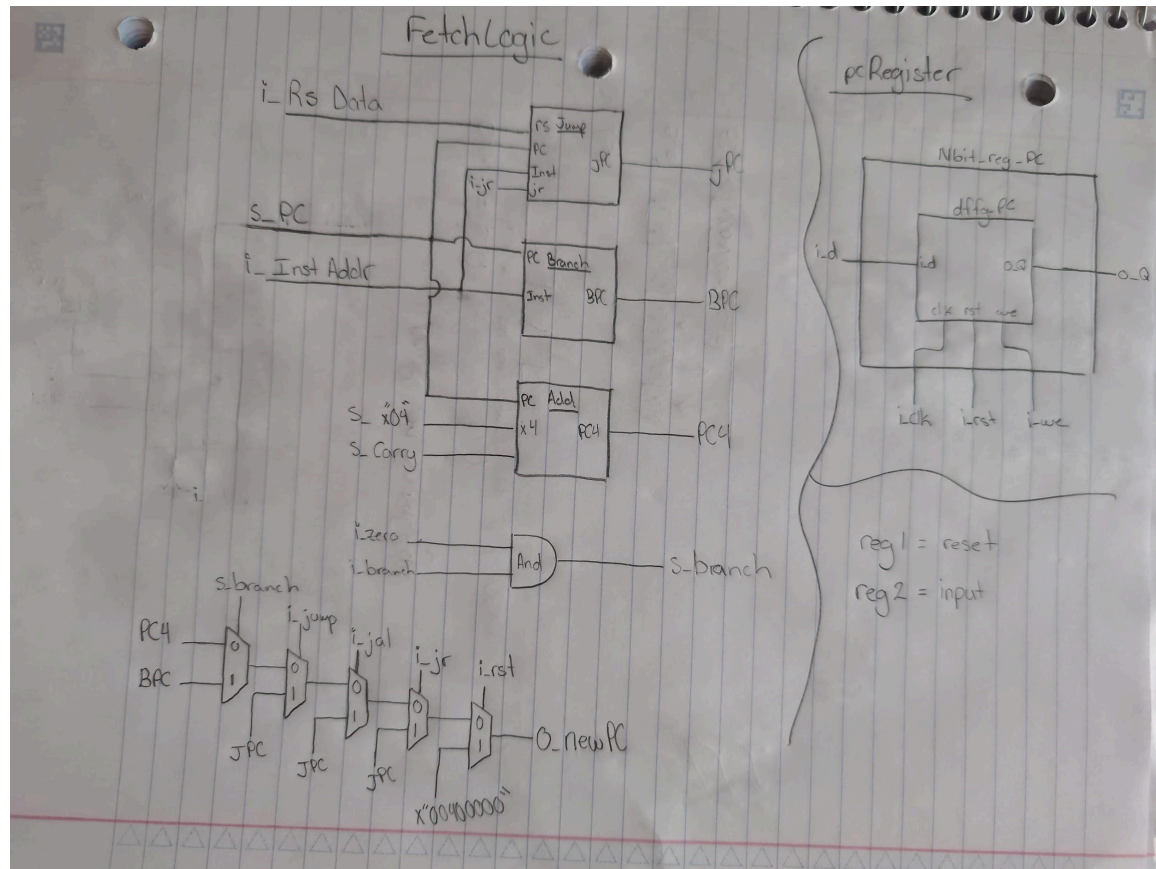 FetchLogic
i_Rs Data
rs Jump
PC
Inst
i_jr
jr
jPC
jPC
s_PC
i_Inst Addr
PC Branch
Inst
BPC
BPC
PC Add
s_ x"04"
x4
PC4
PC4
s_Carry
i_
i_zero
i_branch
And
s_branch
s_branch
i_jump
i_jal
i_jr
i_rst
PC4
BPC
0
1
0
1
0
1
0
1
0
1
JPC
JPC
JPC
x"00400000"
O_newPC
pcRegister
Nbit_reg_PC
dffg_PC
i_d
i_d
o_Q
o_Q
clk rst we
i_clk
i_rst
i_we
reg1 = reset
reg2 = input